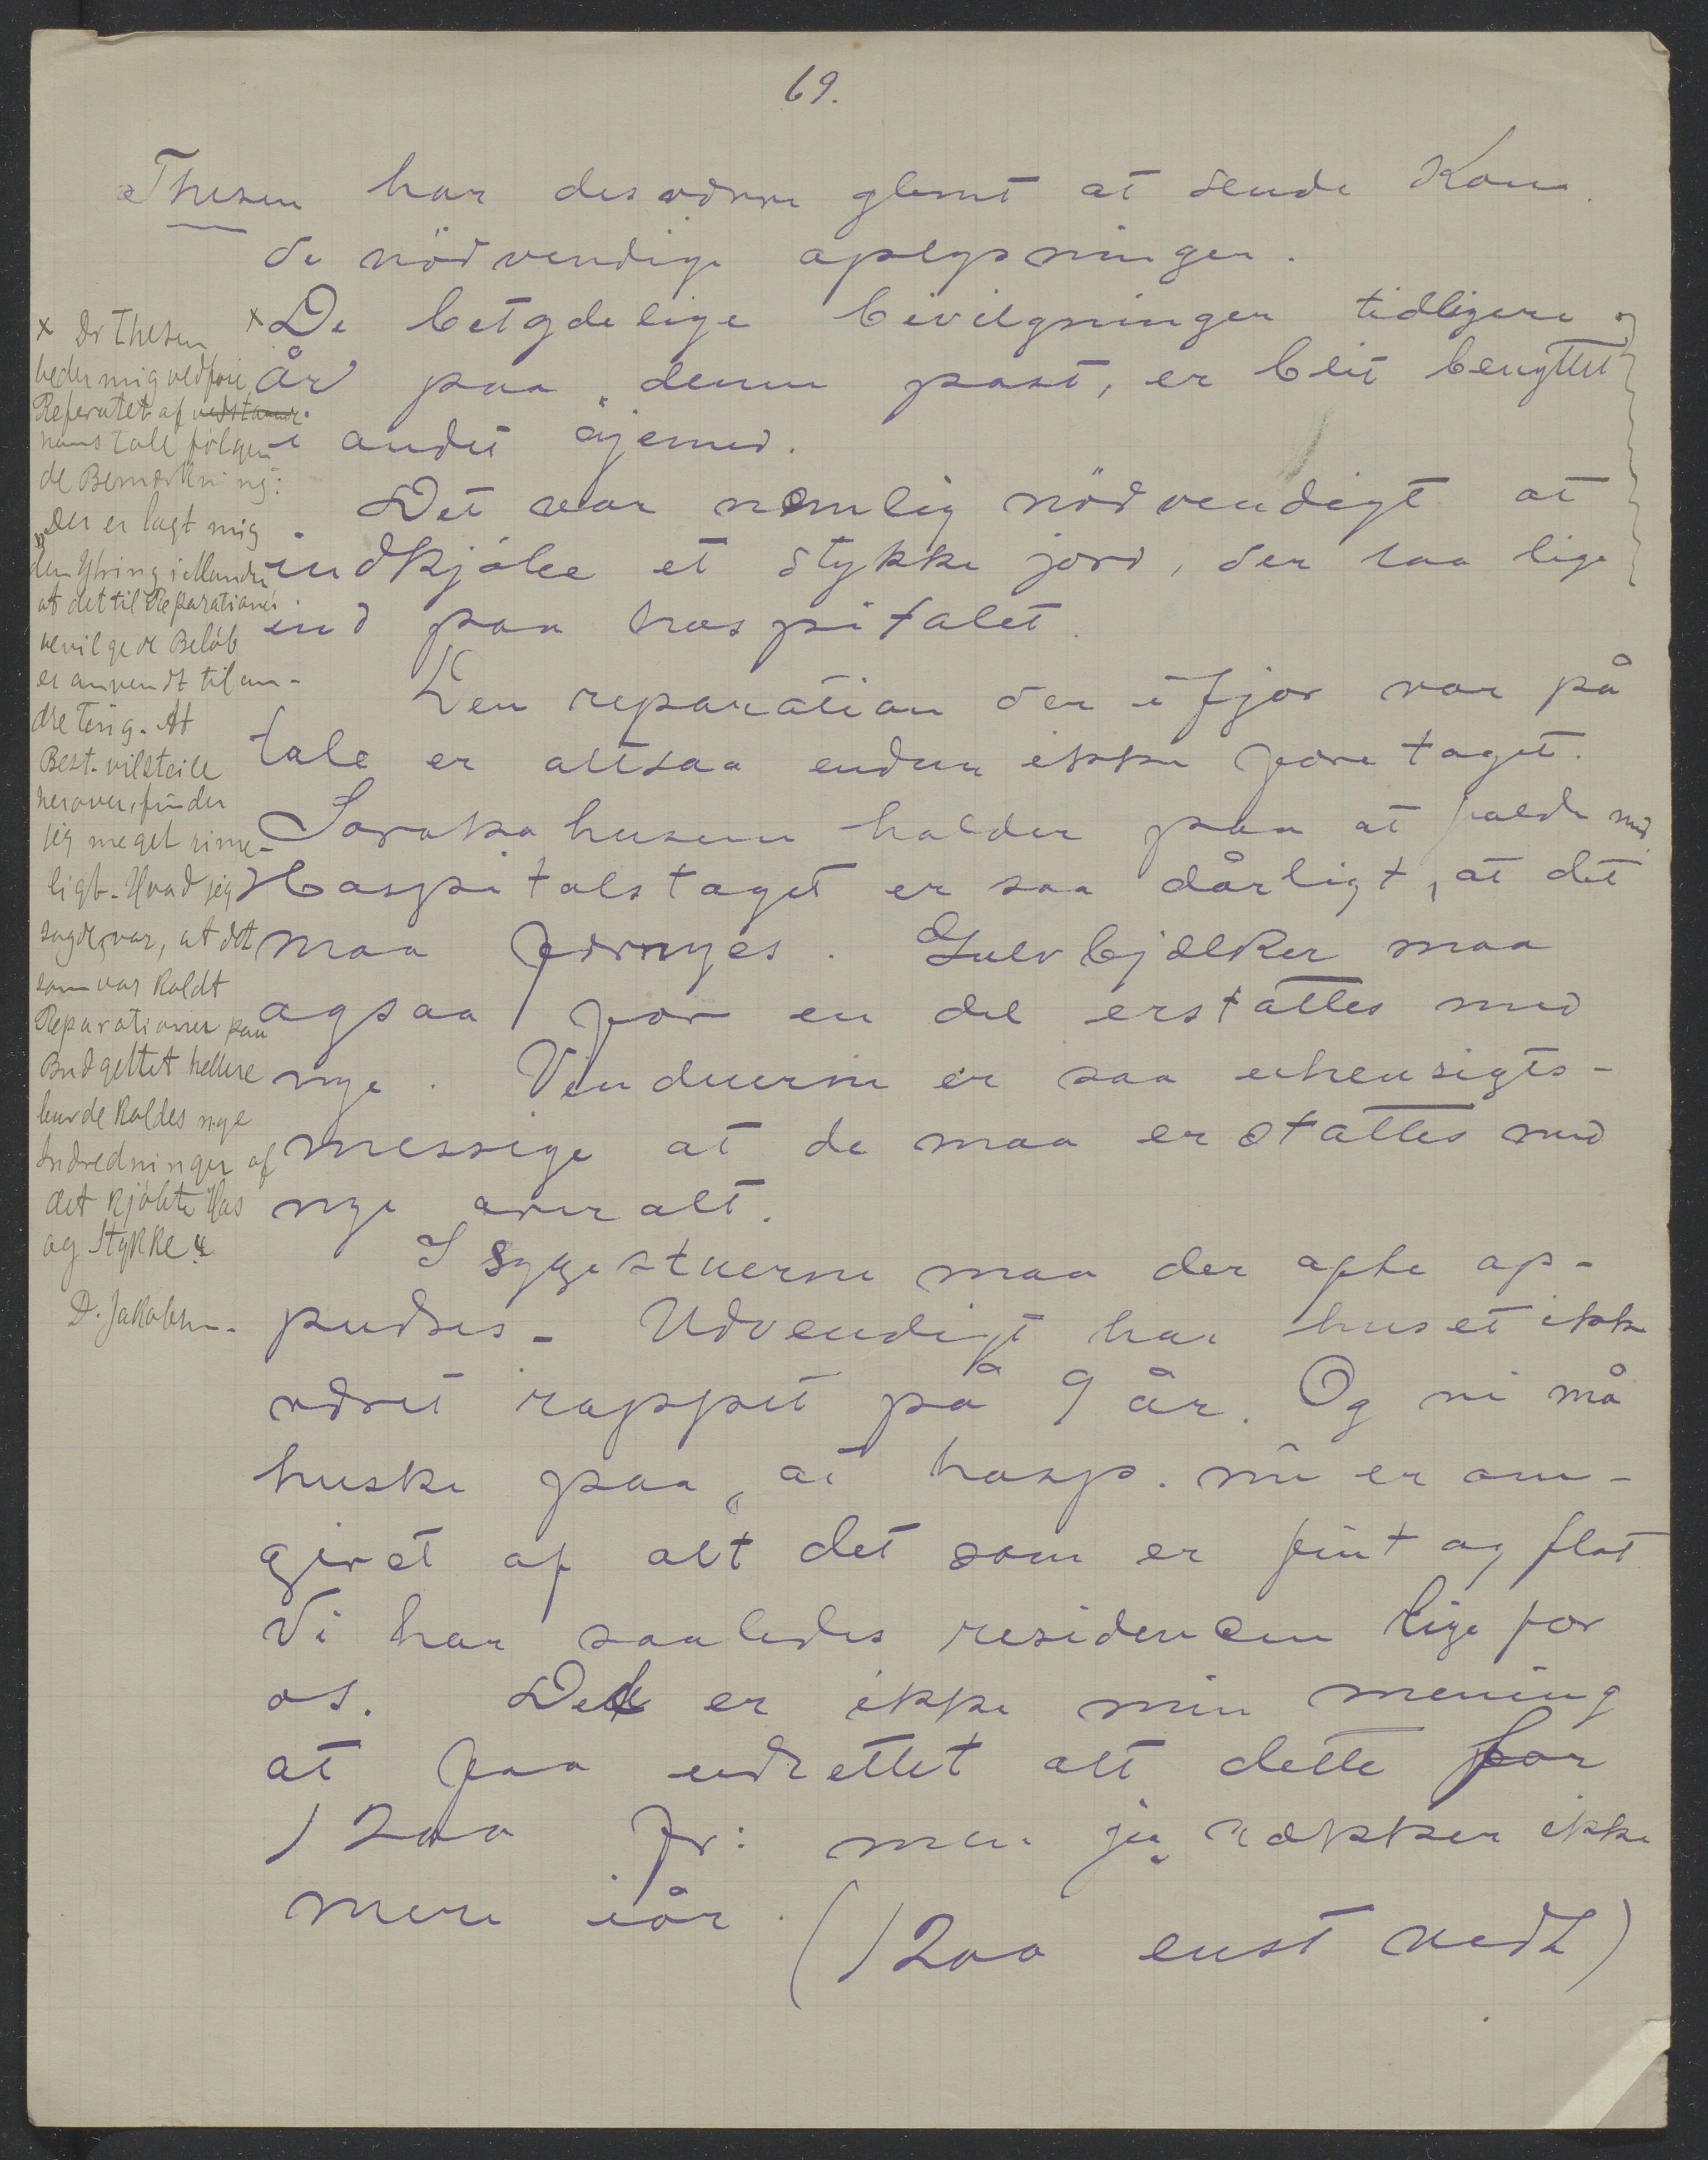 69.
Thesen har desværre glemt at sende Kom.
de nödvendige oplysninger.
x De betydelige bevilgninger tidligere
år paa denne post, er bleit benyttet
i andet øjemed.
Det var nemlig nödvendigt at
indkjøbe et stykke jord, der laa lige
ind paa hospitalet.
Den reparation der ifjor var på
tale er altsaa endnu ikke foretaget.
Sarakahusene holder paa at falde ned
Hospitalstaget er saa dårligt, at det
maa fornyes. Gulvbjælker maa
ogsaa for en del erstattes med
nye. Vinduerne er saa uhensigts-
messige at de maa erstattes med
nye overalt.
I sygestuerne maa der ofte op-
pudses. Udvendigt har huset ikke
været rappet på 9 år. Og vi må
huske paa, at hosp. nu er om-
givet af alt det som er fint og flot
Vi har saaledes residencen lige for
os. Det er ikke min mening
at faa udrettet alt dette for
1200 fr: men jeg rækker ikke
mere iår.
(1200 enst vedt)
x Dr Thesen
beder mig vedføie
Referatet af vedstaaende
hans tale følgen
de Bemærkning:
"Der er lagt mig
den Ytring i Munden
at det til Reparationer
bevilgede Beløb
er anvendt til an-
dre ting. At
Best. vil steile
herover, finder
jeg meget rime-
ligt. Hvad jeg
sagde, var, at det
som var kaldt
Reparationer paa
Budgettet hellere
burde kaldes nye
Indredninger af
det kjøbte Hus
og Stykke."
D. Jakobsen.